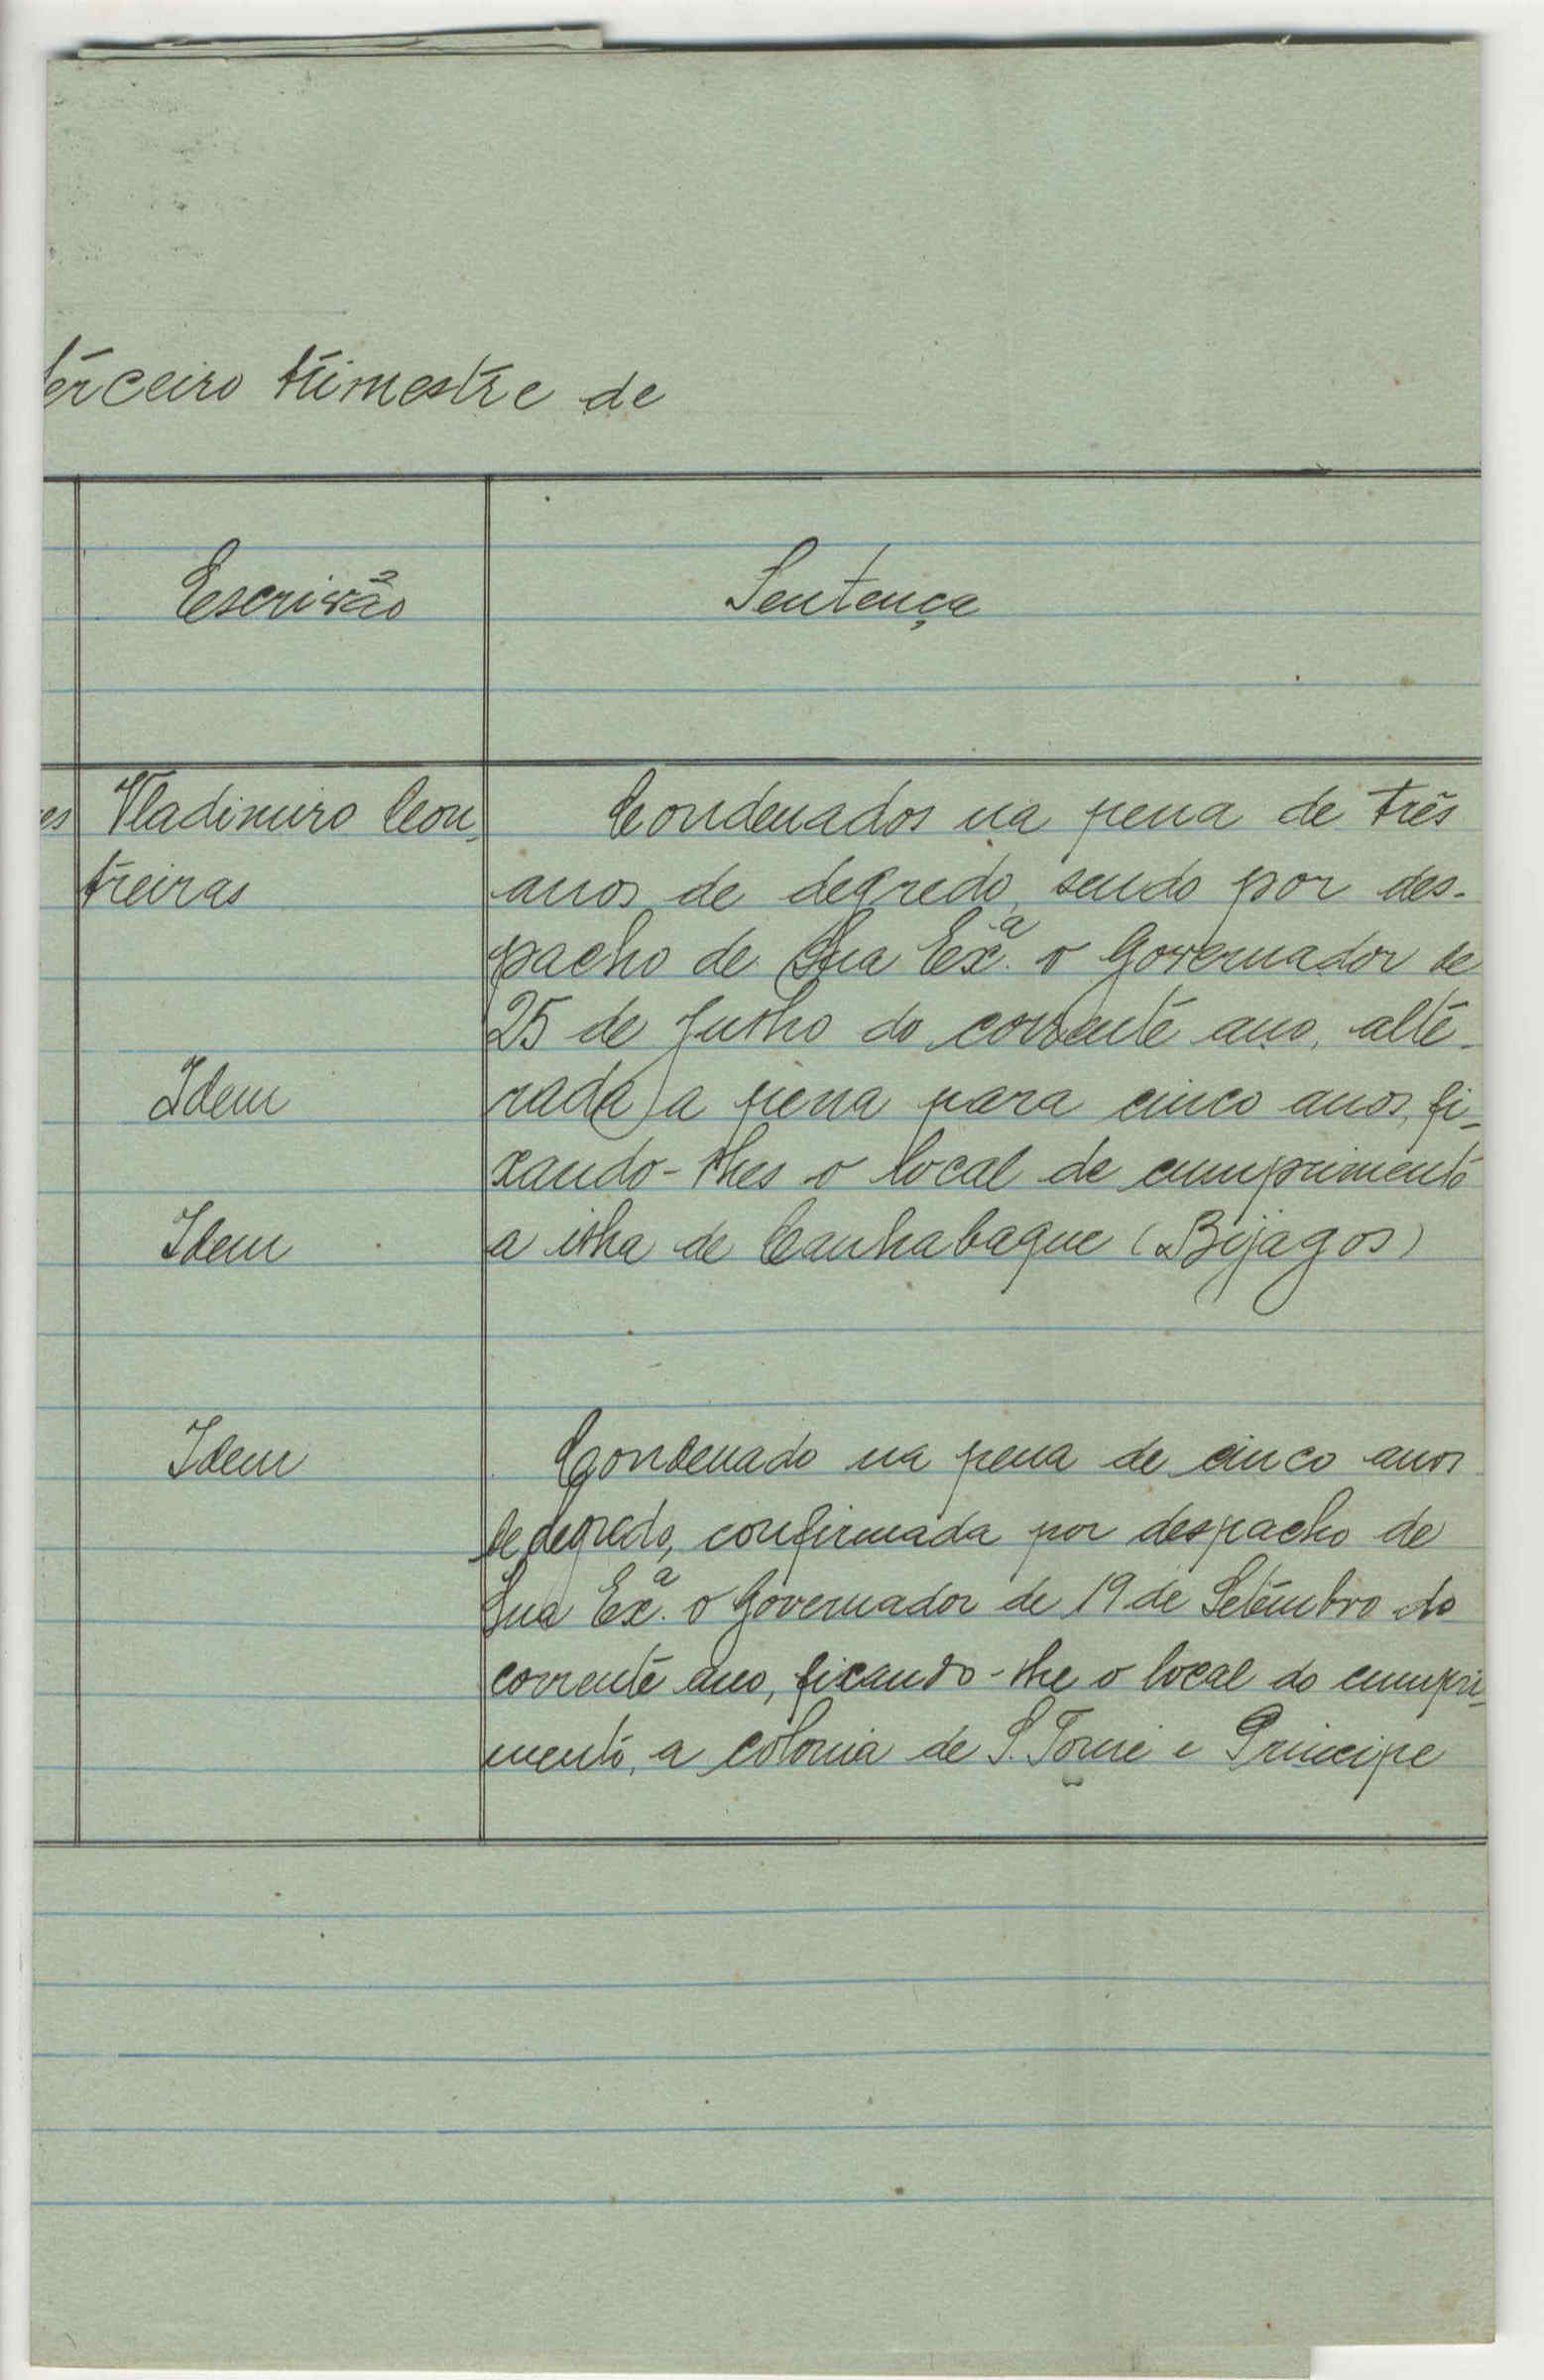 terceiro trimestre de
Escrivão
Sentença
es
Vladimiro Con-
treiras
Idem
Idem
Idem
Condenados na pena de três
anos de degredo, sendo por des-
pacho de Sua Exª. o Governador de
25 de Julho do corrente ano, alte-
rada a pena para cinco anos, fi-
xando-lhes o local de cumprimento
a ilha de Canhabaque (Bijagos)
Condenado na pena de cinco anos
de degredo, confirmada por despacho de
Sua Exª. o Governador de 19 de Setembro do
corrente ano, fixando-lhe o local do cumpri-
mento, a colonia de S. Tomé e Principe